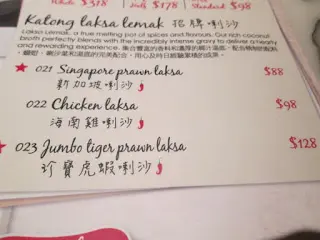 Whole $318
Half $178
Standard $98
Katong laksa lemak 招牌喇沙
Laksa Lemak, a true melting pot of spices and flavours. Our rich coconut
broth perfectly blends with the incredibly intense gravy to deliver a hearty
and rewarding experience.
021 Singapore prawn laksa $88
新加坡喇沙
022 Chicken laksa $98
海南雞喇沙
023 Jumbo tiger prawn laksa $128
珍寶虎蝦喇沙